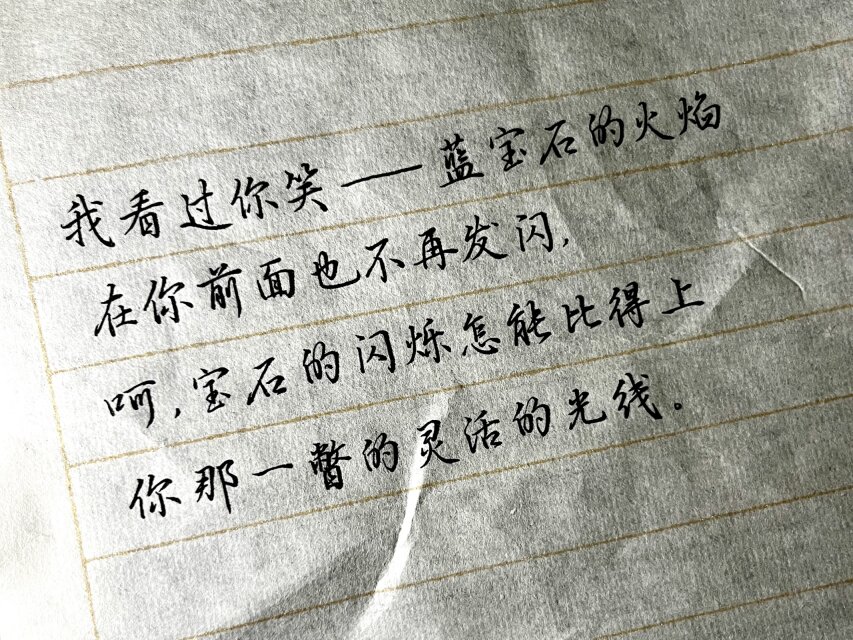 我看过你笑——蓝宝石的火焰
在你前面也不再发闪,
呵,宝石的闪烁怎能比得上
你那一瞥的灵活的光线。